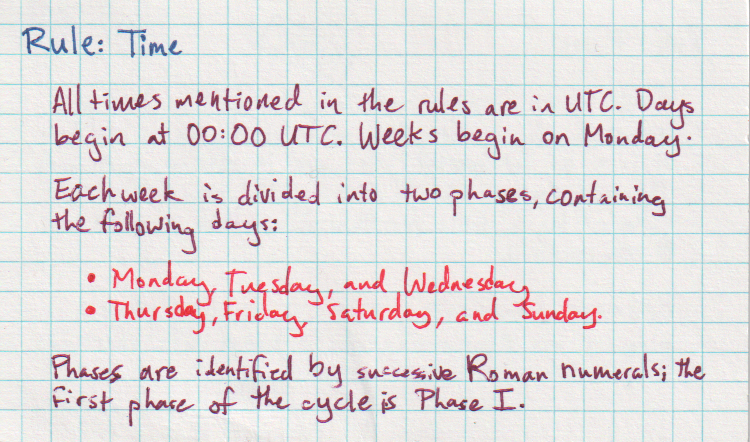 Rule: Time
All times mentioned in the rules are in UTC. Days
begin at 00:00 UTC. Weeks begin on Monday.
Each week is divided into two phases, containing
the following days:
• Monday, Tuesday, and Wednesday
• Thursday, Friday, Saturday, and Sunday.
Phases are identified by successive Roman numerals; the
first phase of the cycle is Phase I.